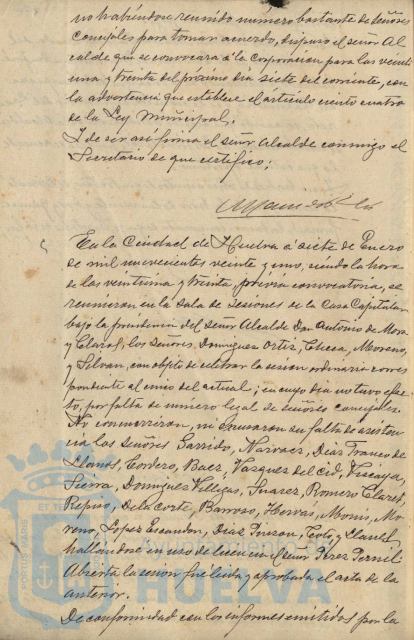 no habiéndose reunido número bastante de señores
concejales para tomar acuerdo, dispuso el señor Al
calde que se convocara á la Corporación para las veinti
una y treinta del proximo dia siete del corriente, con
la advertencia que establece el artículo ciento cuatro
de la Ley Municipal.
Y de ser asi firma el señor Alcalde conmigo el
Secretario de que certifico;
En la Ciudad de Huelva á siete de Enero
de mil novecientos veinte y uno, siendo la hora
de las veintiuna y treinta, previa convocatoria, se
reunieron en la Sala de Sesiones de la Casa Capitular
bajo la presidencia del señor Alcalde Don Antonio de Mora
y Claros, los señores Dominguez Ortiz, Checa, Moreno,
y Silvan, con objeto de celebrar la sesion ordinaria corres
pondiente al cinco del actual; en cuyo dia no tuvo efec
to, por falta de número legal de señores concejales.
No concurrieron, ni excusaron su falta de asisten
cia los señores Garrido, Narvaez, Diaz Franco de
Llanos, Cordero, Baez, Vazquez del Cid, Vizcaya,
Sierra, Dominguez Villegas, Suarez, Romero Claret,
de la Corte, Barroso, Hervas, Mo
reno, Lopez Escandon, Diaz
hallandose en uso de licencia el señor Perez
Abierta la sesion fué leida y aprobada el acta de la
anterior.
De conformidad con los informes emitidos por la
PORTUS MARIS ET TE
HUELVA